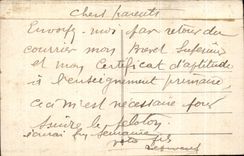 Chers parents
Envoyez-moi par retour du
courrier mon Brevet Supérieur
et mon Certificat d'aptitude
à l'enseignement primaire
Ceci m'est nécessaire pour
suivre le peloton
semaine
votre fils